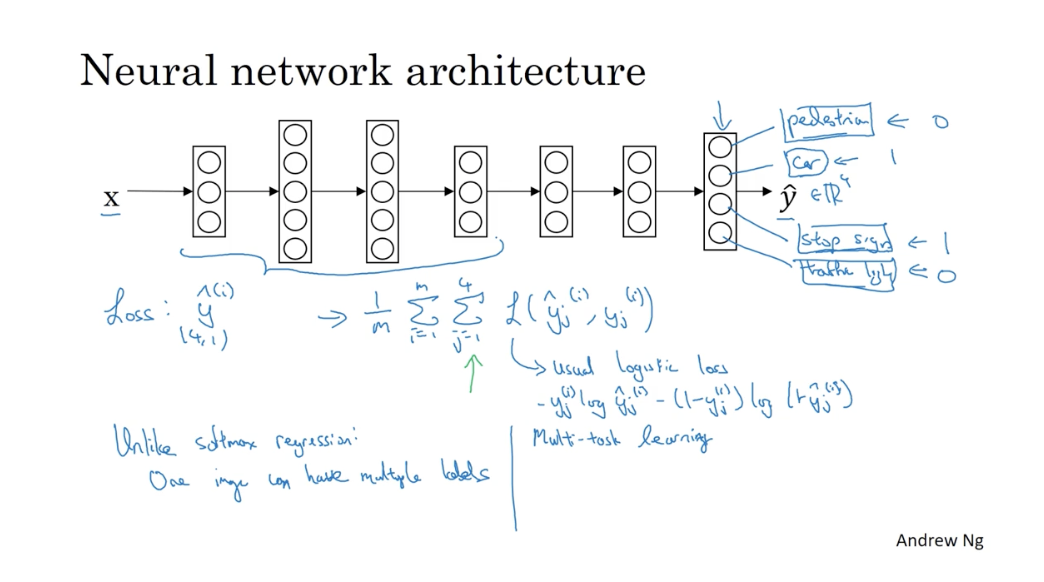 Neural network architecture
pedestrian ← 0
car ← 1
x
ŷ ∈ ℝ⁴
stop sign ← 1
traffic light ← 0
Loss: ŷ^(i) → 1/m Σ_{i=1}^{m} Σ_{j=1}^{4} L(ŷ_j^(i), y_j^(i))
(4,1)
↳ usual logistic loss
- y_j^(i) log ŷ_j^(i) - (1-y_j^(i)) log (1-ŷ_j^(i))
Unlike softmax regression:
One image can have multiple labels
Multi-task learning
Andrew Ng